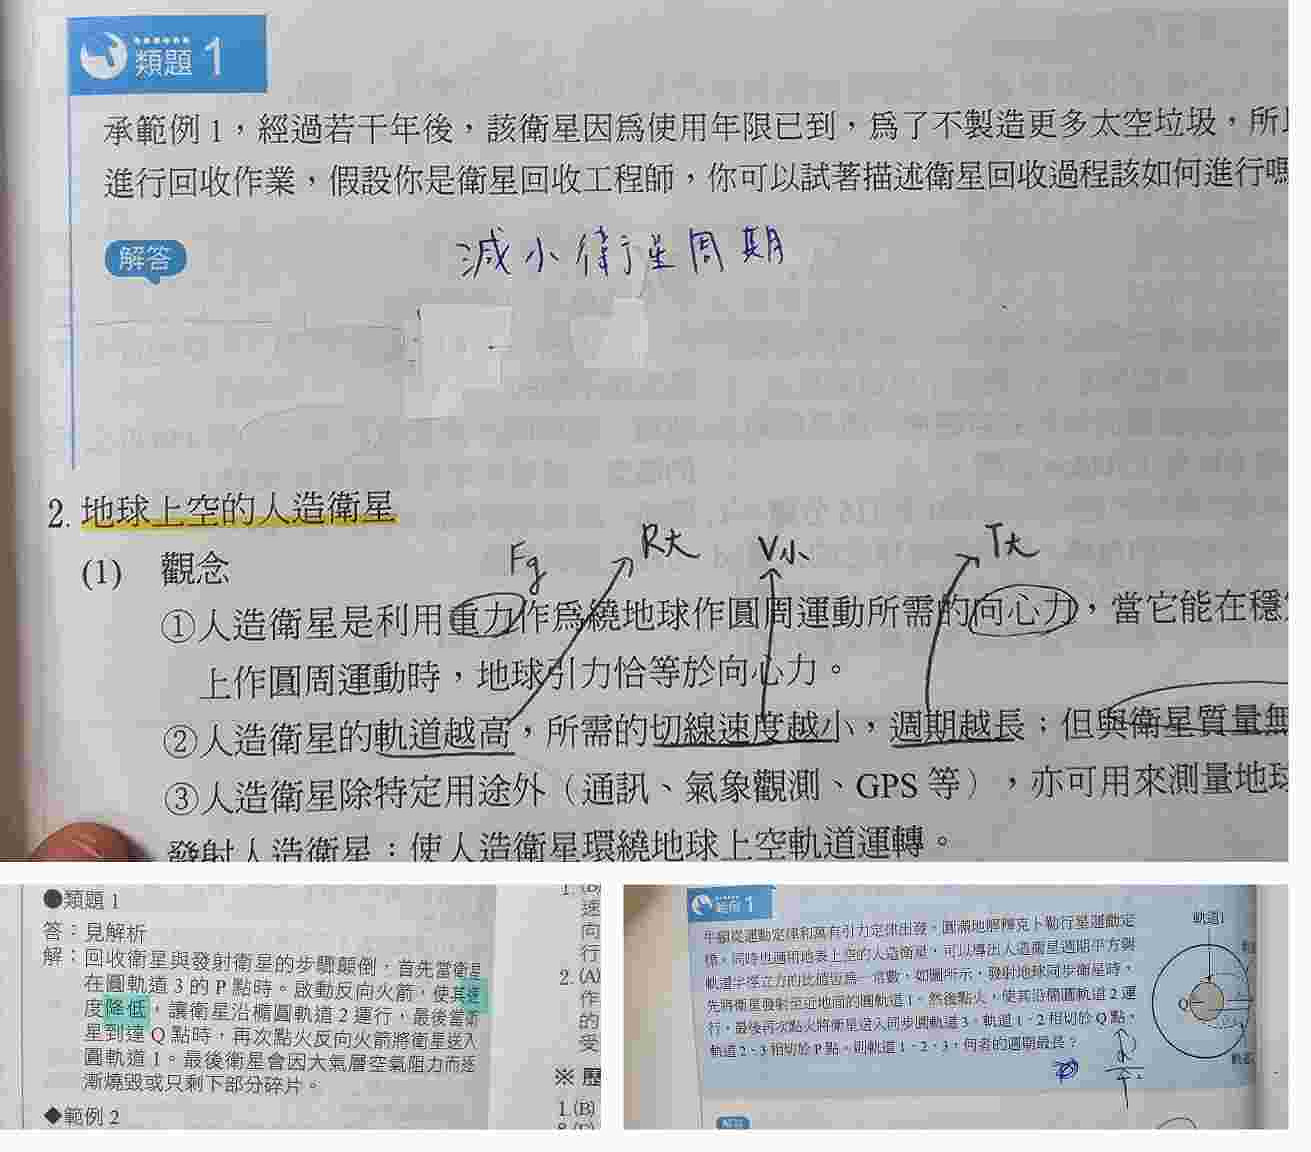 類題 1
承範例 1，經過若干年後，該衛星因為使用年限已到，為了不製造更多太空垃圾，所
進行回收作業，假設你是衛星回收工程師，你可以試著描述衛星回收過程該如何進行嗎
解答
減小衛星周期
2. 地球上空的人造衛星
Fg R大 V小 T大
(1) 觀念
①人造衛星是利用重力作為繞地球作圓周運動所需的向心力，當它能在穩
上作圓周運動時，地球引力恰等於向心力。
②人造衛星的軌道越高，所需的切線速度越小，週期越長；但與衛星質量無
③人造衛星除特定用途外（通訊、氣象觀測、GPS 等），亦可用來測量地球
發射人造衛星：使人造衛星環繞地球上空軌道運轉。
●類題 1
答：見解析
解：回收衛星與發射衛星的步驟顛倒，首先當衛星
在圓軌道 3 的 P 點時。啟動反向火箭，使其速
度降低，讓衛星沿橢圓軌道 2 運行，最後當衛
星到達 Q 點時，再次點火反向火箭將衛星送入
圓軌道 1。最後衛星會因大氣層空氣阻力而逐
漸燒毀或只剩下部分碎片。
◆範例 2
1. (B)
速
向
行
2. (A)
作
的
受
※ 歷
1. (B)
範例 1
牛頓從運動定律和萬有引力定律出發，圓滿地解釋克卜勒行星運動定
律，同時也適用地表上空的人造衛星，可以導出人造衛星週期平方與
軌道半徑立方的比值皆為一常數，如圖所示，發射地球同步衛星時，
先將衛星發射至近地面的圓軌道 1，然後點火，使其沿橢圓軌道 2 運
行，最後再次點火將衛星送入同步圓軌道 3。軌道 1、2 相切於 Q 點，
軌道 2、3 相切於 P 點，則軌道 1、2、3，何者的週期最長？
軌道1
Q
解答